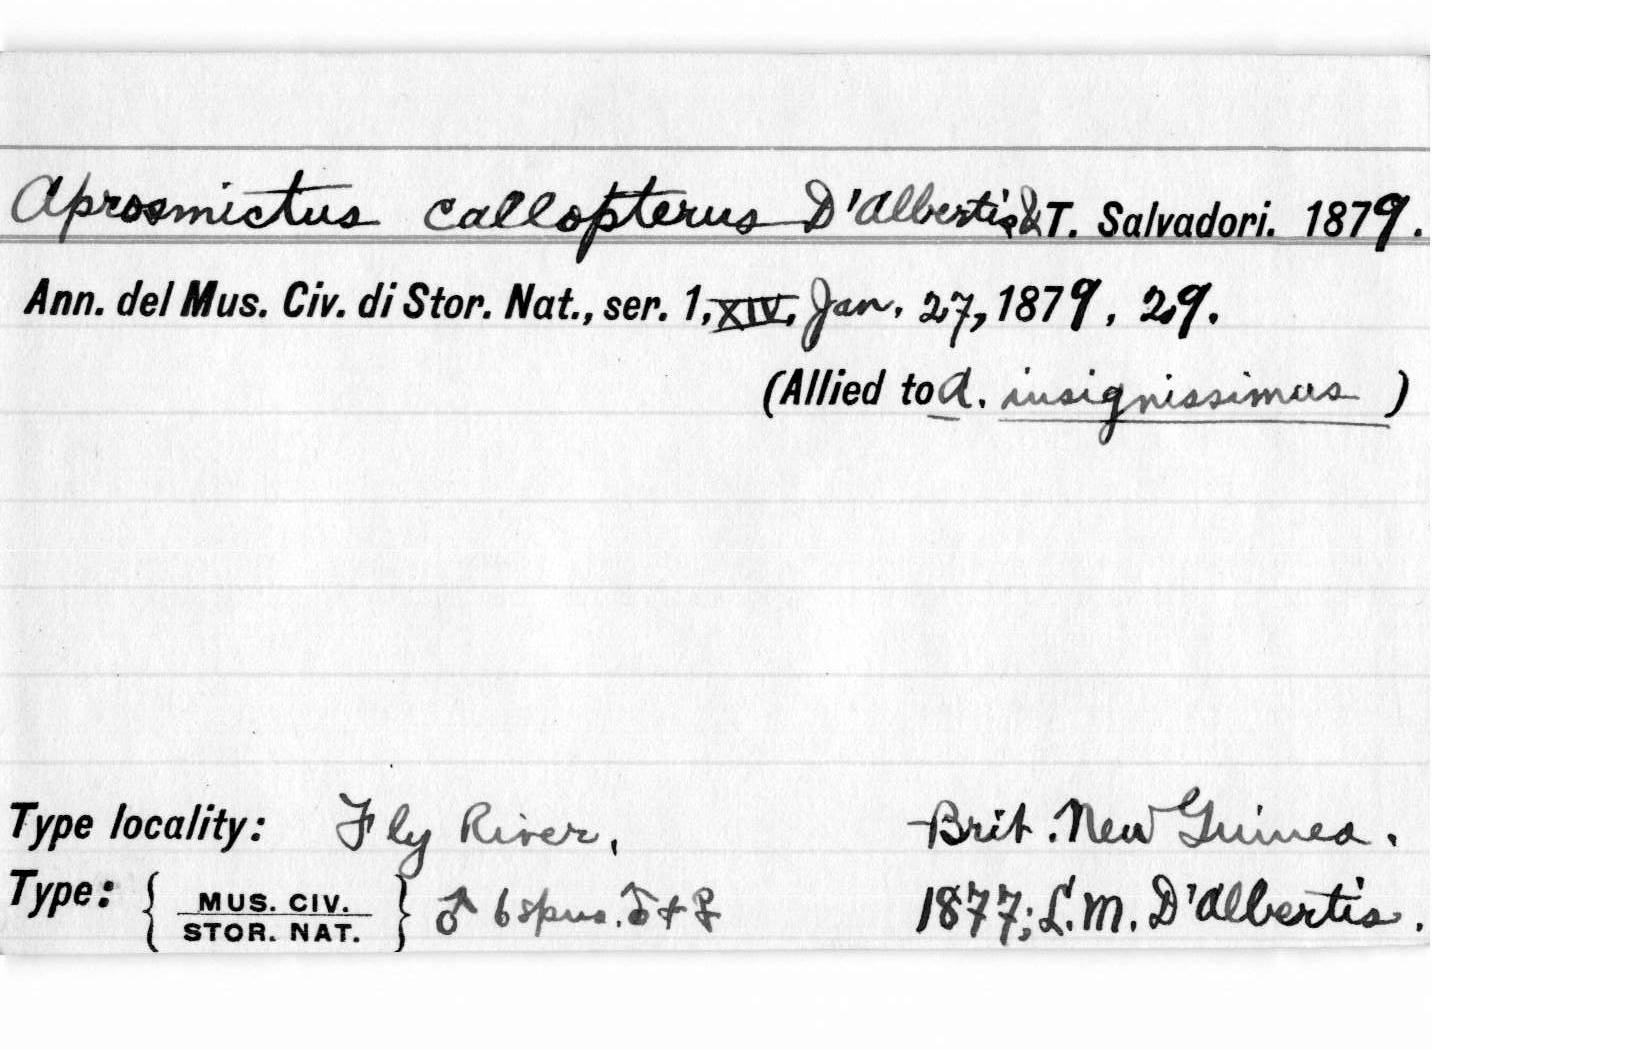 Aprosmictus callopterus D'Albertis & T. Salvadori. 1879.
Ann. del Mus. Civ. di Stor. Nat., ser. 1, XIV, Jan. 27, 1879, 29.
(Allied to A. insignissimus)
Type locality: Fly River, Brit. New Guinea.
Type: { MUS. CIV. STOR. NAT. } ♂ 6 spns. ♂ + ♀ 1877; L. M. D'Albertis.